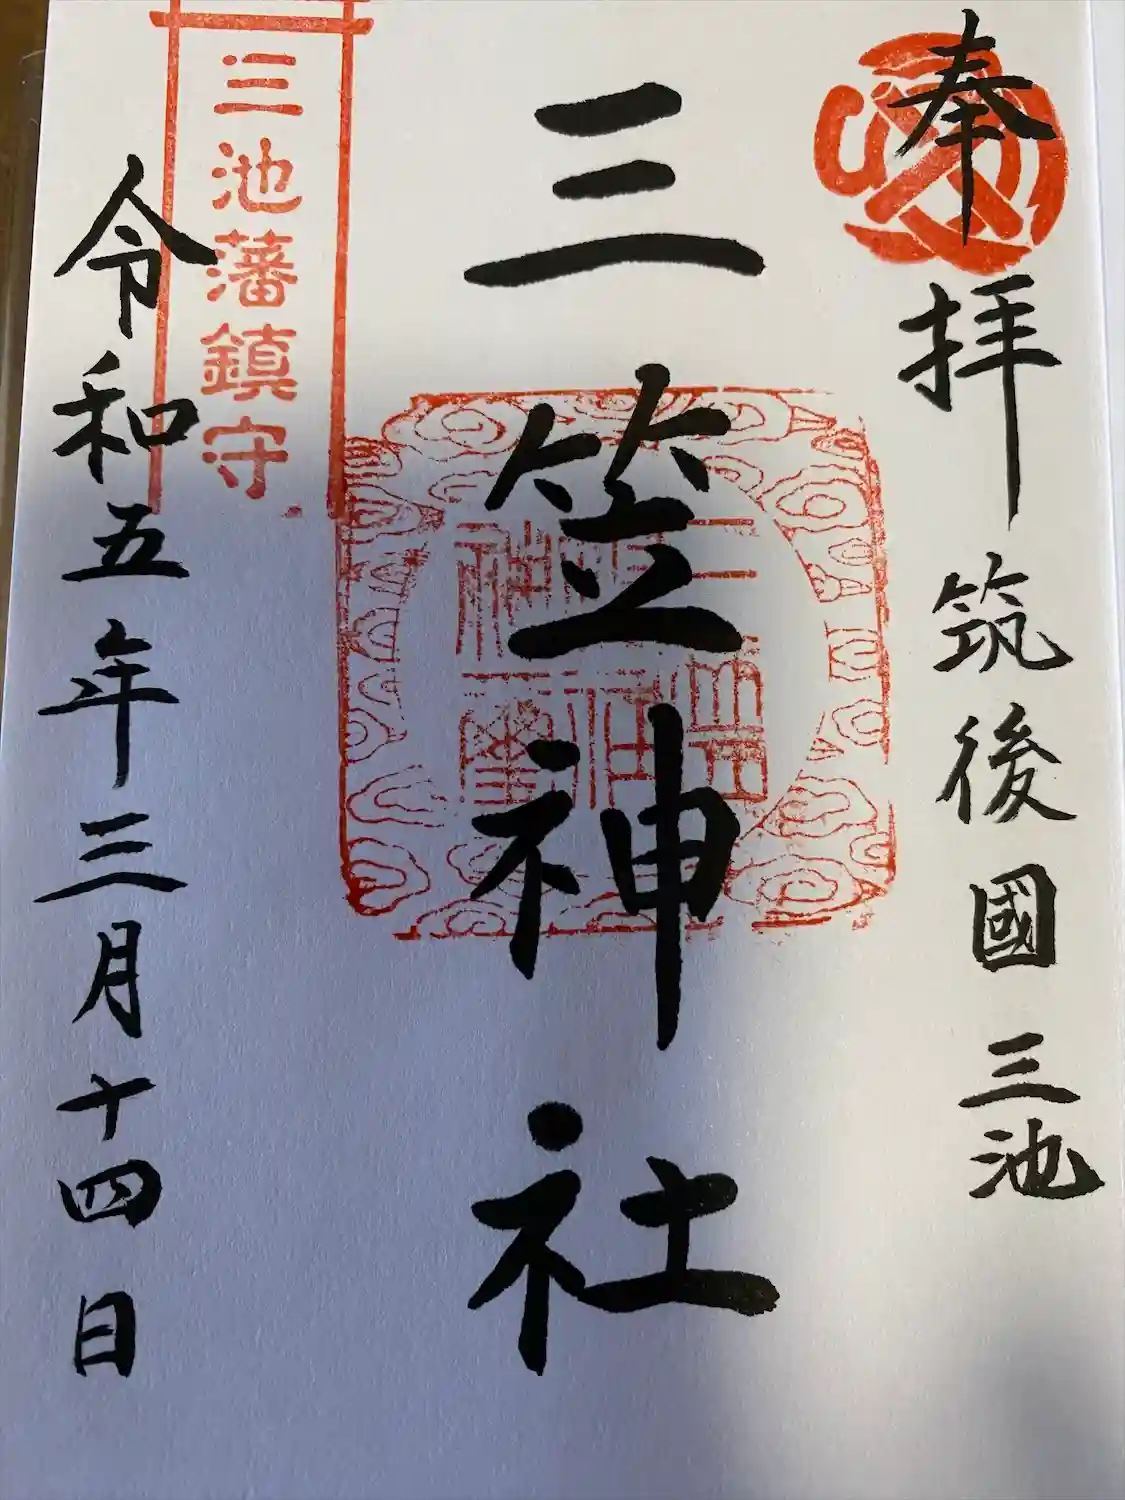 奉拝 筑後國三池
三笠神社
三池藩鎮守
令和五年三月十四日